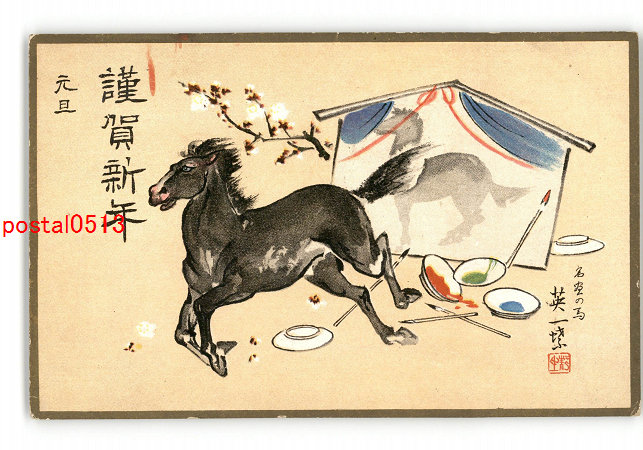 謹賀新年
元旦
postal0513
名画の馬
英一蝶